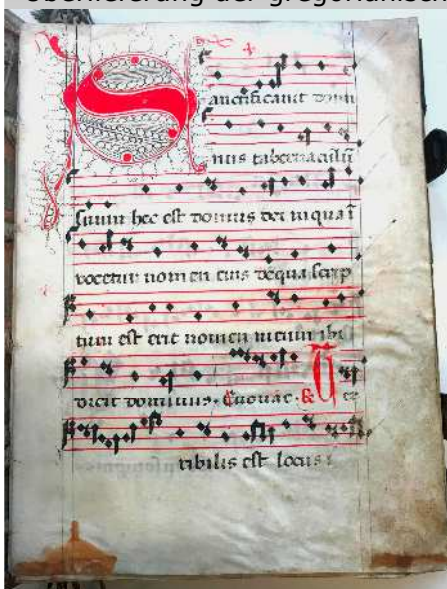 Überlieferung der gregorianisch
Sanctificavit domi
nus tabernaculū
suum hec est domus dei in qua ī
vocetur nomen eius de qua scrip
tum est erit nomen meum ibi
dicit dominus. Euouae. R Te
ribilis est locus i